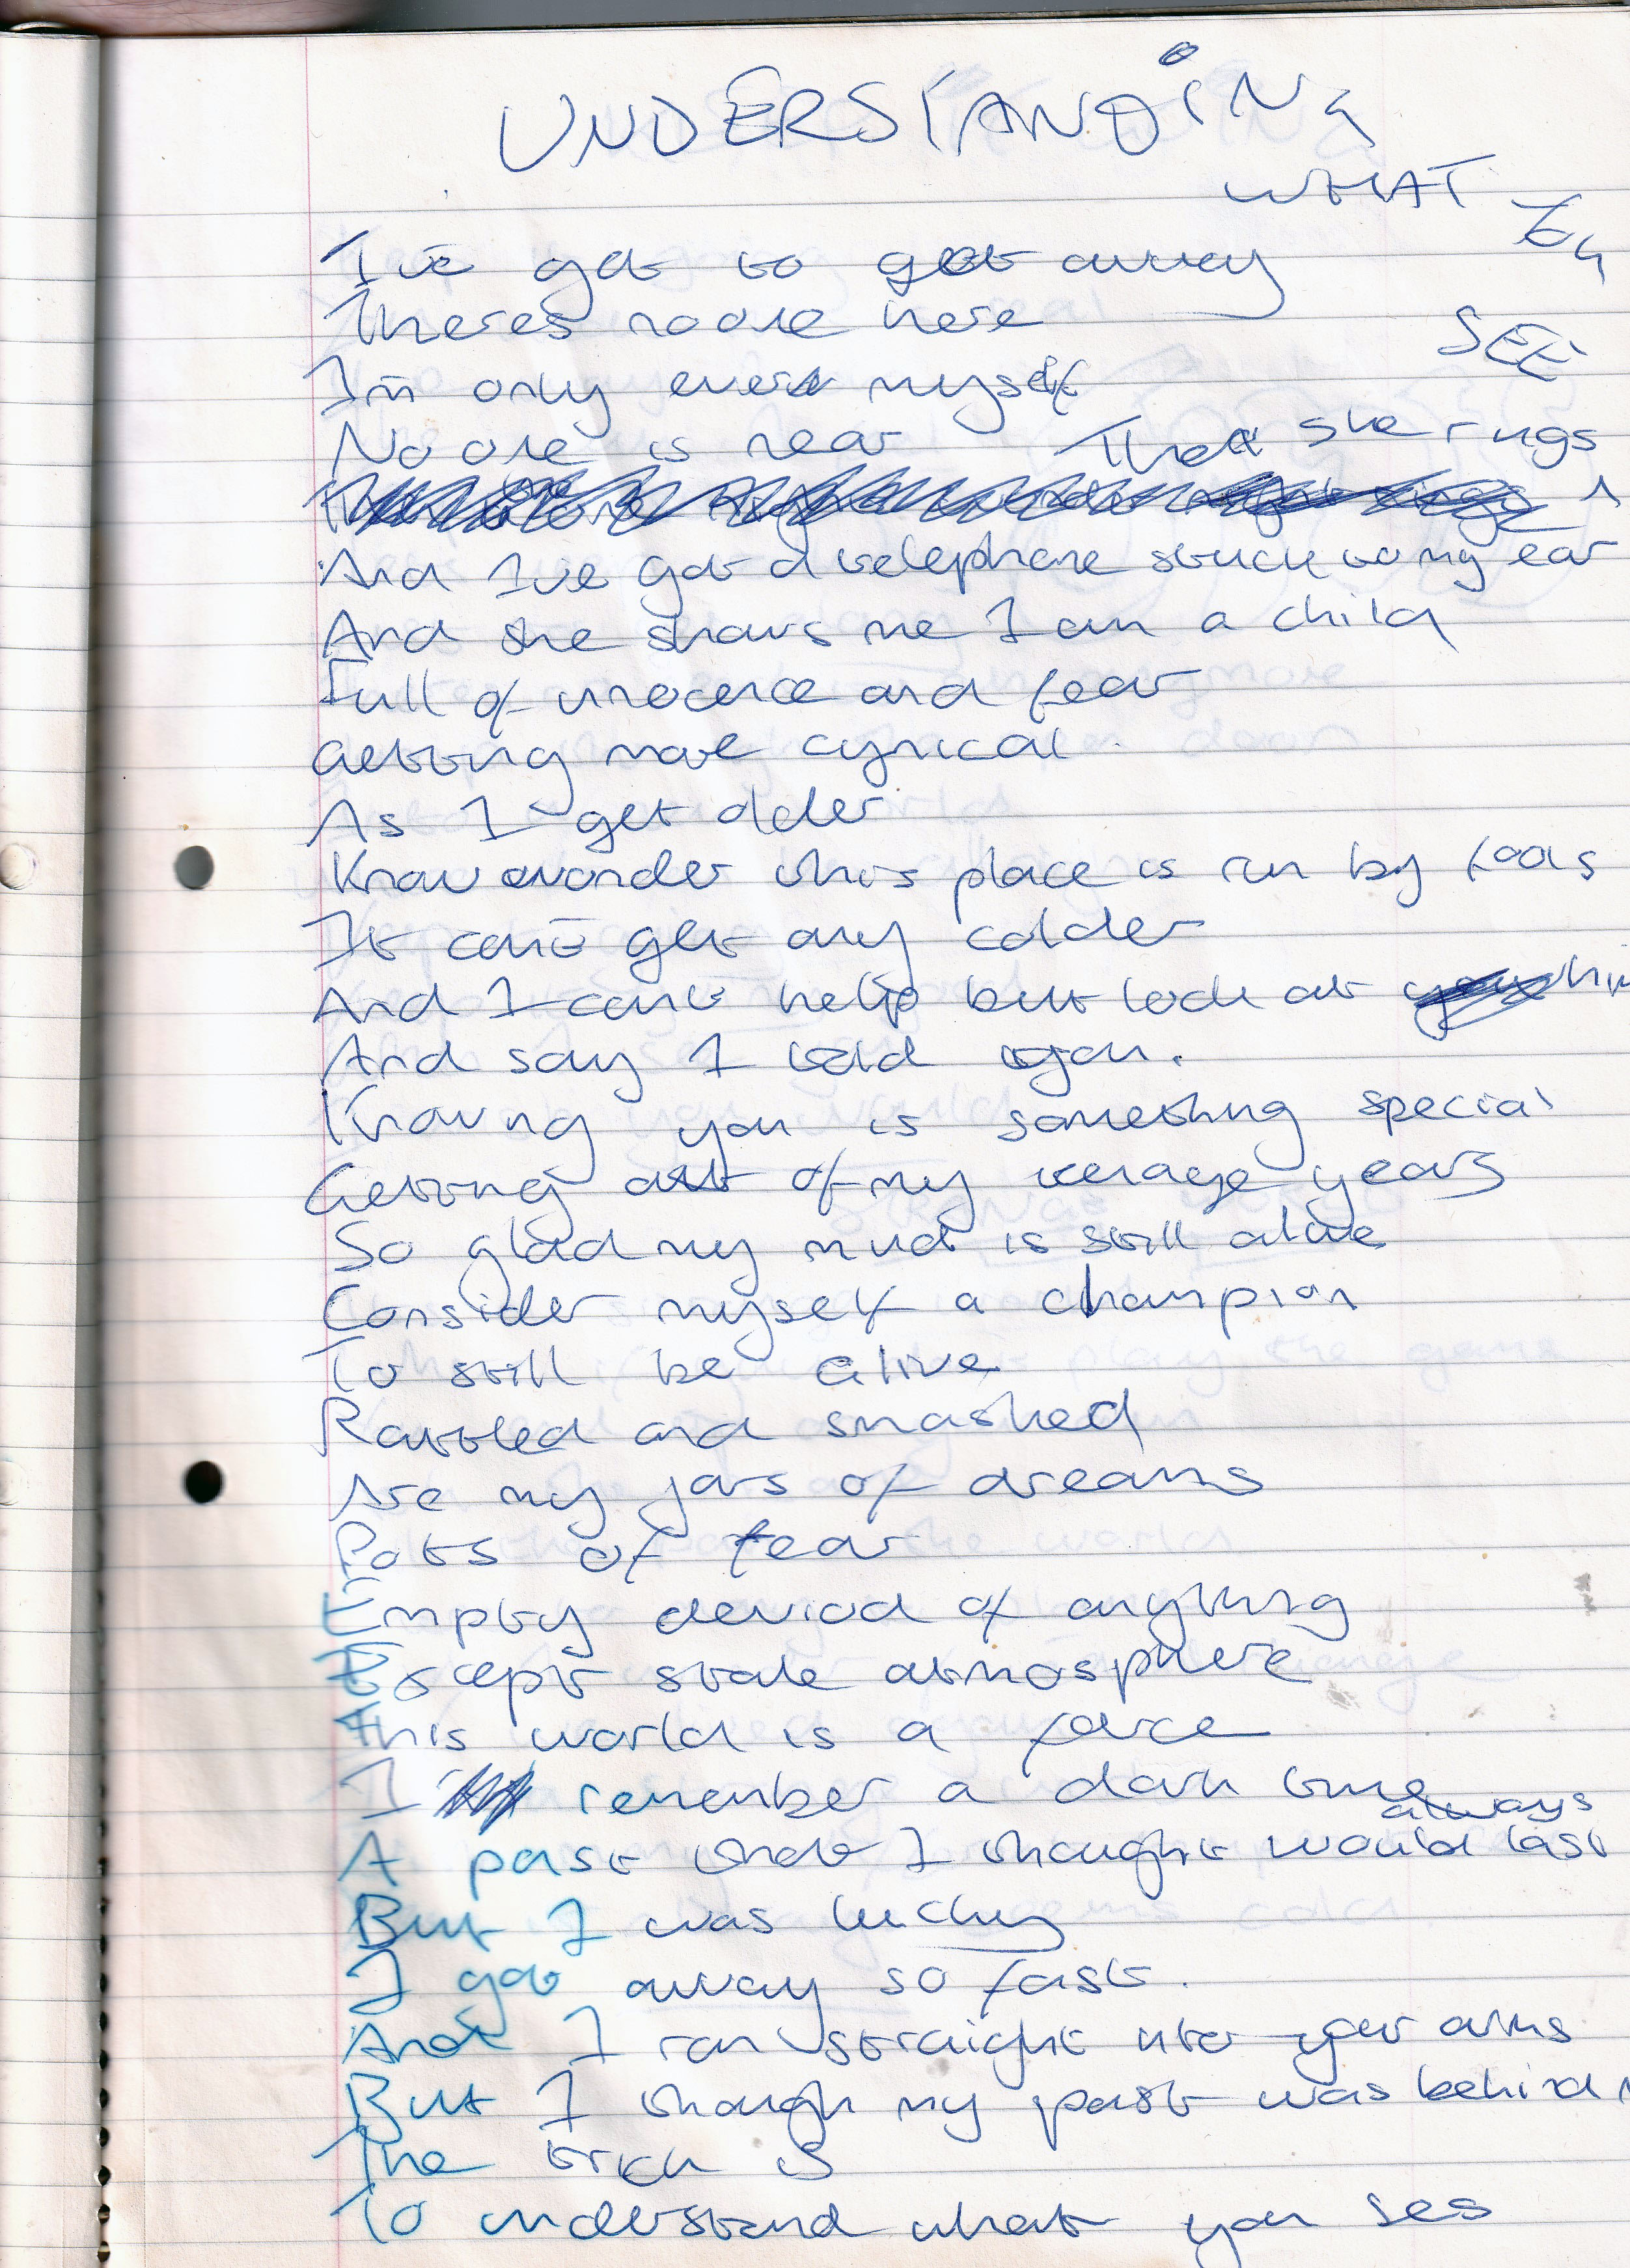 UNDERSTANDING
WHAT
SEE
I've got to get away
Theres no one here
I'm only ever myself
No one is near
That she rings
And I've got a telephone stuck to my ear
And she shows me I am a child
Full of innocence and fear
Getting more cynical
As I get older
Know wonder this place is run by fools
It can't get any colder
And I can't help but look at
And say I told you.
Knowing you is something special
Getting out of my teenage years
So glad my mind is still alive
Consider myself a champion
To still be alive
Rattled and smashed
Are my jars of dreams
Pots of fear
Empty deviod of anything
Except stale atmosphere
this world is a farce
I remember a dark time
always
A past that I thought would last
But I was lucky
I got away so fast.
And I ran straight into your arms
But I though my past was behind
The trick is
To understand what you see